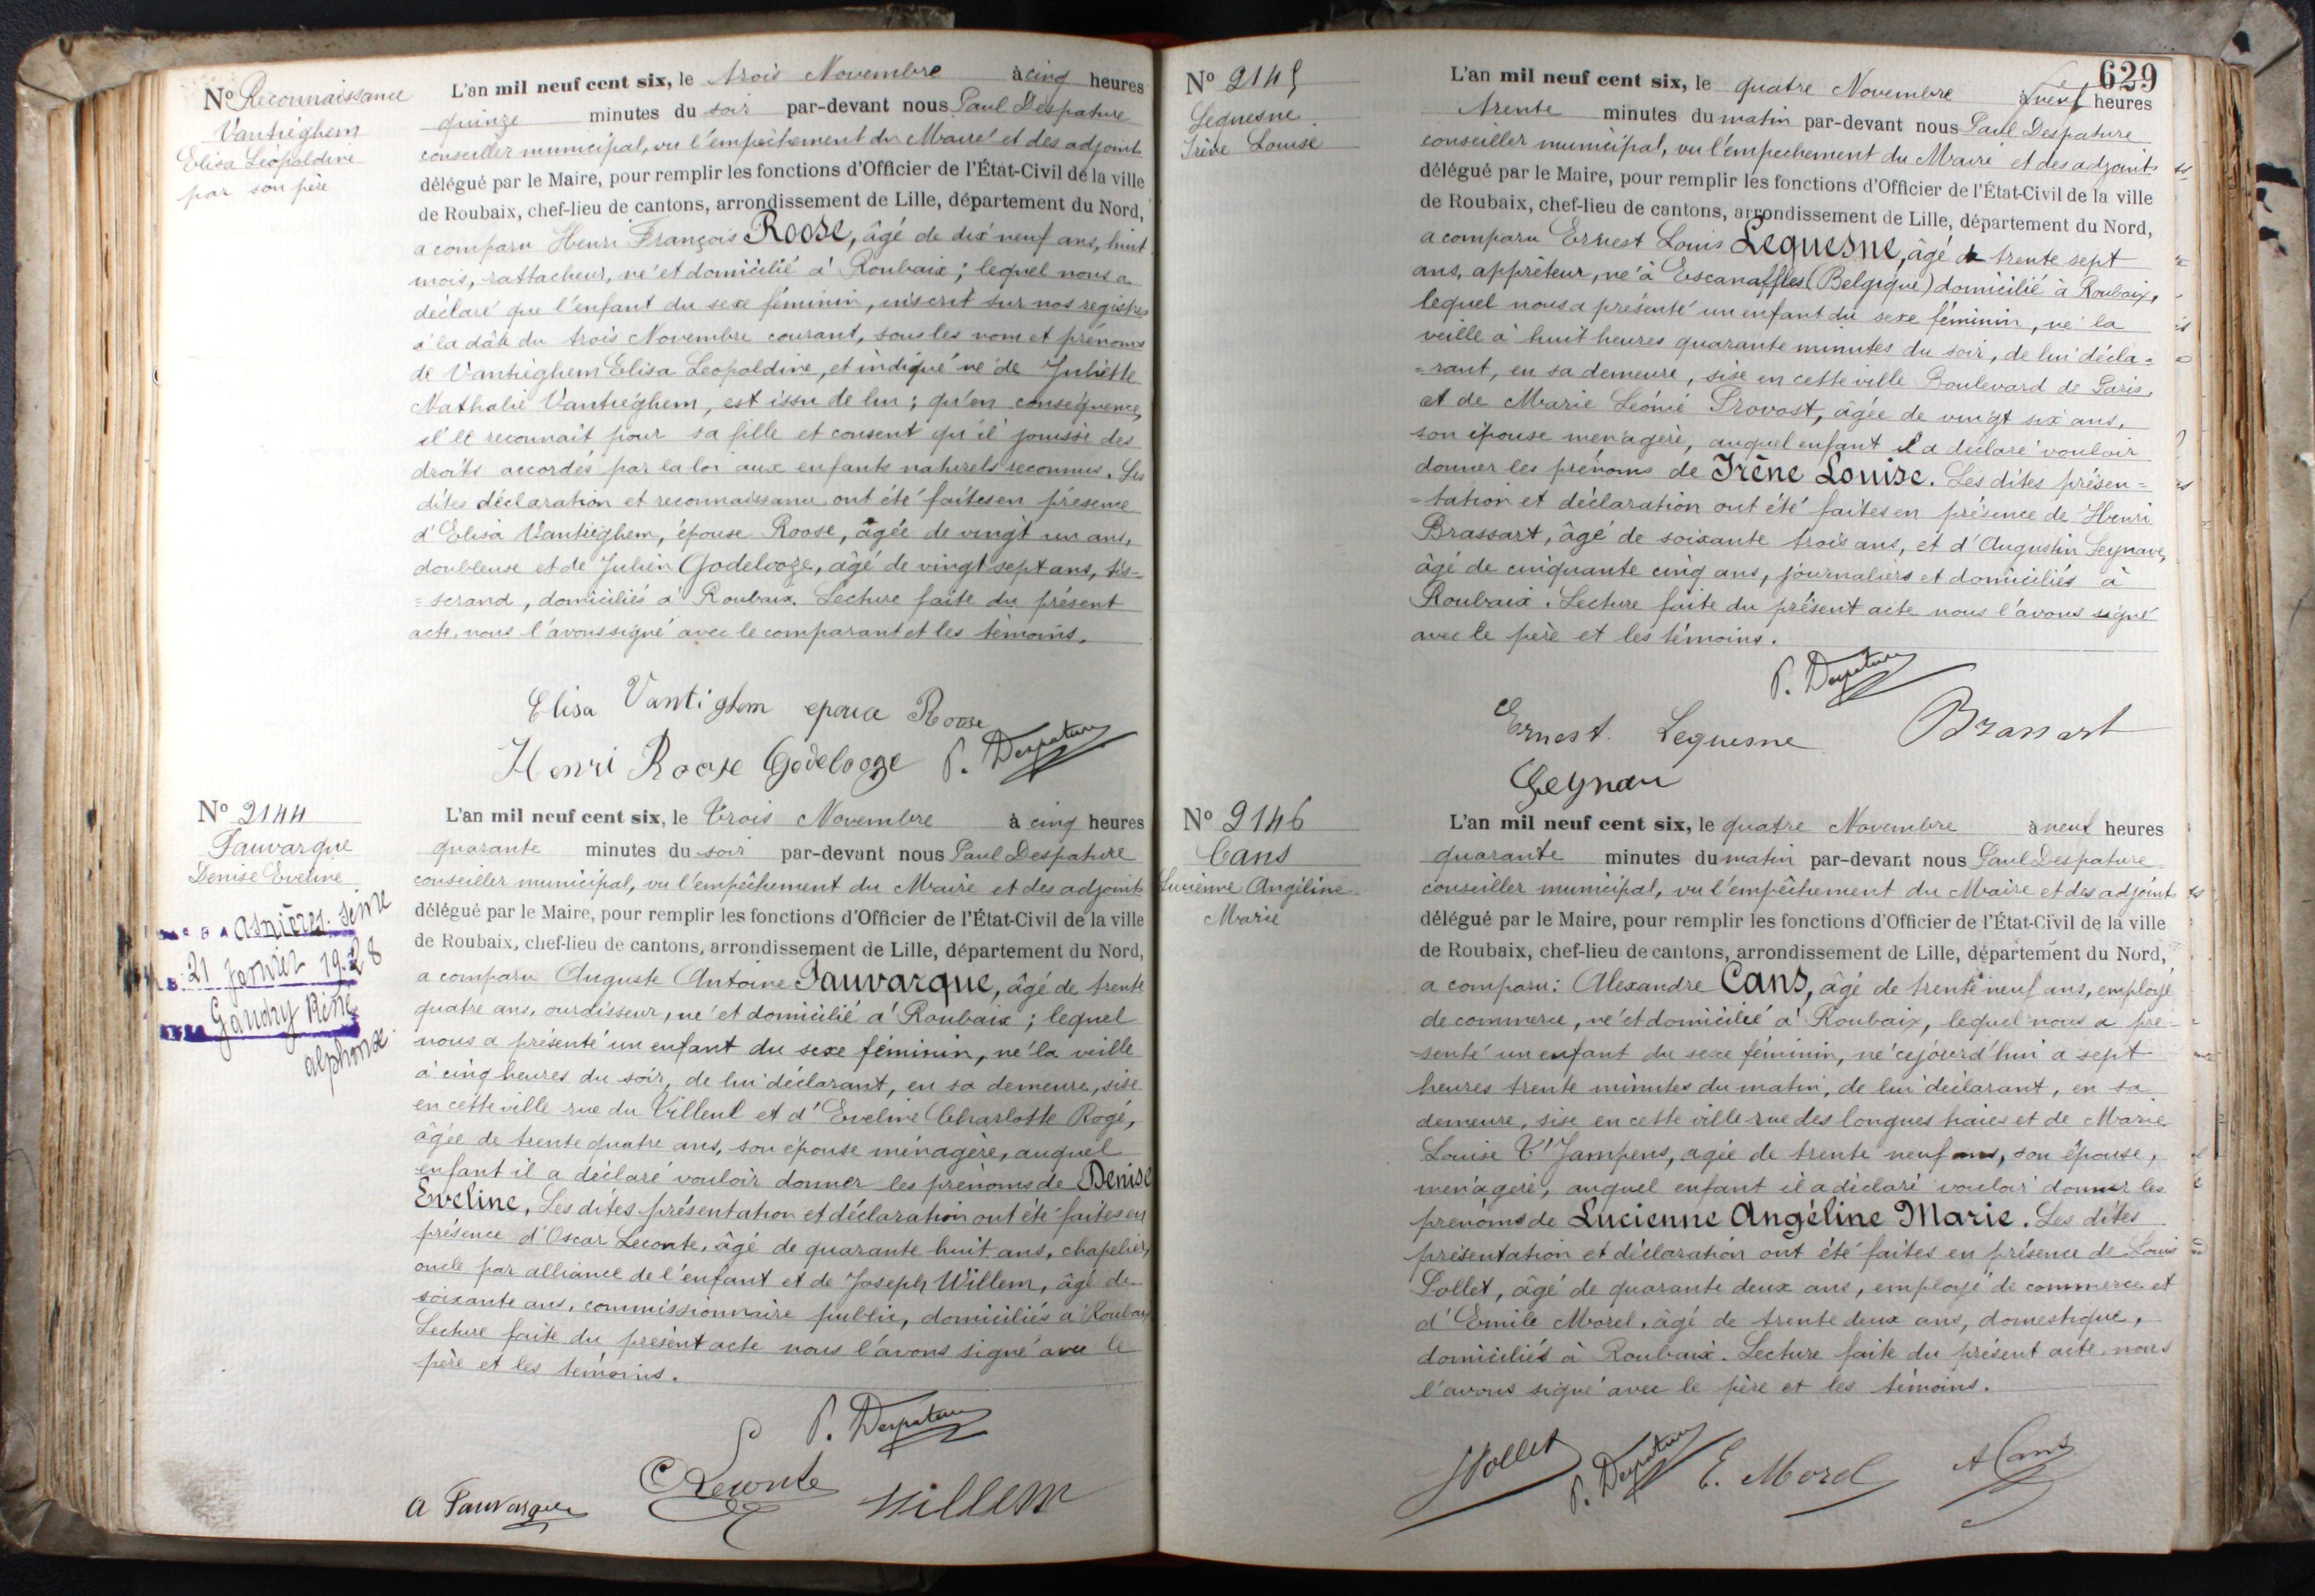 N° Reconnaissance
Vantieghem
Elisa Léopoldine
par son père
L'an mil neuf cent six, le trois Novembre à cinq heures
quinze minutes du soir par-devant nous Paul Despature
conseiller municipal, vu l'empêchement du Maire et des adjoints
délégué par le Maire, pour remplir les fonctions d'Officier de l'État-Civil de la ville
de Roubaix, chef-lieu de cantons, arrondissement de Lille, département du Nord,
a comparu Henri François Roose, âgé de dix neuf ans, huit
mois, rattacheur, né et domicilié à Roubaix; lequel nous a
déclaré que l'enfant du sexe féminin, inscrit sur nos registres
à la date du trois Novembre courant, sous les nom et prénoms
de Vantieghem Elisa Léopoldine, et indiqué né de Juliette
Nathalie Vantieghem, est issu de lui; qu'en conséquence,
il le reconnait pour sa fille et consent qu'il jouisse des
droits accordés par la loi aux enfants naturels reconnus. Les
dites déclaration et reconnaissance ont été faites en présence
d'Elisa Vantieghem, épouse Roose, âgée de vingt un ans,
doubleuse et de Julien Godelooze, âgé de vingt sept ans, tis=
=serand, domiciliés à Roubaix. Lecture faite du présent
acte, nous l'avons signé avec le comparant et les témoins.
Elisa Vantighem epouse Roose
Henri Roose Godelooze P. Despature
N° 2144
Fauvarque
Denise Eveline
Asnières. Seine
21 Janvier 1928
Gaudry René
alphonse
L'an mil neuf cent six, le Trois Novembre à cinq heures
quarante minutes du soir par-devant nous Paul Despature
conseiller municipal, vu l'empêchement du Maire et des adjoints
délégué par le Maire, pour remplir les fonctions d'Officier de l'État-Civil de la ville
de Roubaix, chef-lieu de cantons, arrondissement de Lille, département du Nord,
a comparu Auguste Antoine Fauvarque, âgé de trente
quatre ans, ourdisseur, né et domicilié à Roubaix; lequel
nous a présenté un enfant du sexe féminin, né la veille
à cinq heures du soir, de lui déclarant, en sa demeure, sise
en cette ville rue du Tilleul et d'Eveline Charlotte Rogé,
âgée de trente quatre ans, son épouse ménagère, auquel
enfant il a déclaré vouloir donner les prénoms de Denise
Eveline. Les dites présentation et déclaration ont été faites en
présence d'Oscar Leconte, âgé de quarante huit ans, chapelier,
oncle par alliance de l'enfant et de Joseph Willem, âgé de
soixante ans, commissionnaire public, domiciliés à Roubaix
Lecture faite du présent acte nous l'avons signé avec le
père et les témoins.
P. Despature
a Fauvarque Leconte Willem
629
N° 2145
Lequesne
Irène Louise
L'an mil neuf cent six, le quatre Novembre à neuf heures
trente minutes du matin par-devant nous Paul Despature
conseiller municipal, vu l'empechement du Maire et des adjoints
délégué par le Maire, pour remplir les fonctions d'Officier de l'État-Civil de la ville
de Roubaix, chef-lieu de cantons, arrondissement de Lille, département du Nord,
a comparu Ernest Louis Lequesne, âgé de trente sept
ans, apprêteur, né à Escanaffles (Belgique) domicilié à Roubaix,
lequel nous a présenté un enfant du sexe féminin, né la
veille à huit heures quarante minutes du soir, de lui décla=
=rant, en sa demeure, sise en cette ville Boulevard de Paris,
et de Marie Léonie Provost, âgée de vingt six ans,
son épouse ménagère, auquel enfant il a déclaré vouloir
donner les prénoms de Irène Louise. Les dites présen=
=tation et déclaration ont été faites en présence de Henri
Brassart, âgé de soixante trois ans, et d'Augustin Seynave,
âgé de cinquante cinq ans, journaliers et domiciliés à
Roubaix. Lecture faite du présent acte nous l'avons signé
avec le père et les témoins.
P. Despature
Ernest Lequesne Brassart
N° 2146
Cans
Lucienne Angéline
Marie
L'an mil neuf cent six, le quatre Novembre à neuf heures
quarante minutes du matin par-devant nous Paul Despature
conseiller municipal, vu l'empêchement du Maire et des adjoints
délégué par le Maire, pour remplir les fonctions d'Officier de l'État-Civil de la ville
de Roubaix, chef-lieu de cantons, arrondissement de Lille, département du Nord,
a comparu: Alexandre Cans, âgé de trente neuf ans, employé
de commerce, né et domicilié à Roubaix, lequel nous a pré=
senté un enfant du sexe féminin, né cejourd'hui à sept
heures trente minutes du matin, de lui déclarant, en sa
demeure, sise en cette ville rue des longues haies et de Marie
Louise T'Jampens, agée de trente neuf ans, son épouse,
ménagère, auquel enfant il a déclaré vouloir donner les
prénoms de Lucienne Angéline Marie. Les dites
présentation et déclaration ont été faites en présence de Louis
Sollet, âgé de quarante deux ans, employé de commerce et
d'Emile Morel, âgé de trente deux ans, domestique,
domiciliés à Roubaix. Lecture faite du présent acte, nous
l'avons signé avec le père et les témoins.
P. Despature E. Morel A Cans